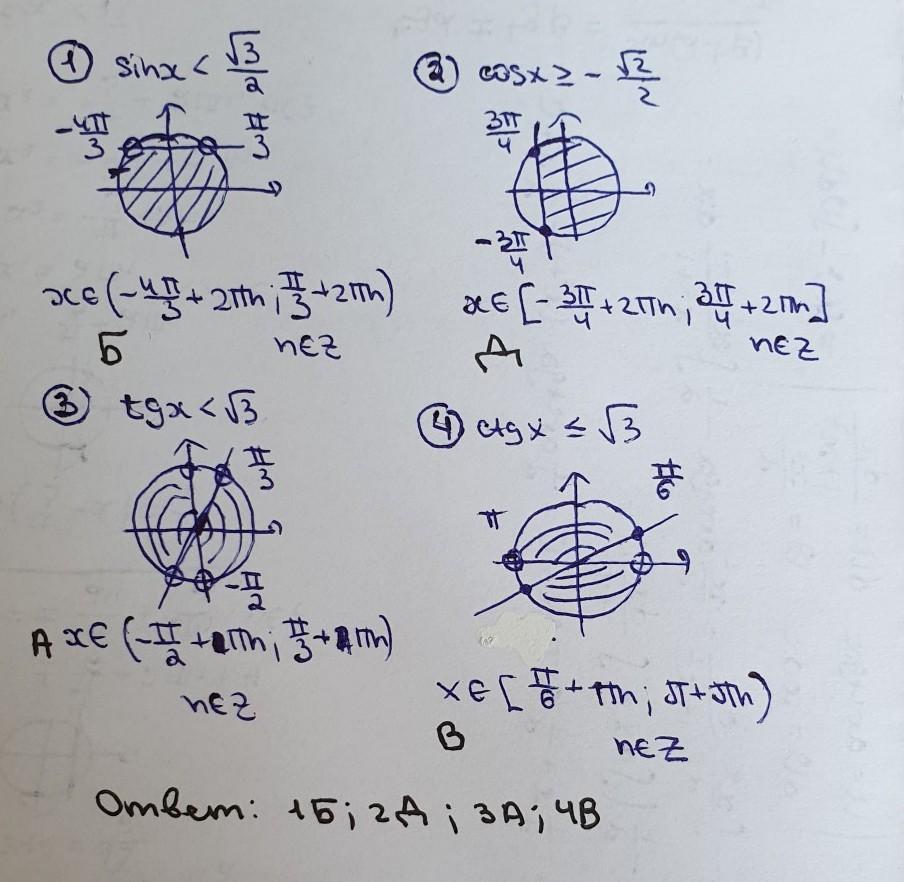 ① sinx < √3/2
-4π/3 π/3
x∈(-4π/3+2πn; π/3+2πn)
Б n∈Z
② cosx ≥ -√2/2
3π/4
-3π/4
x∈[-3π/4+2πn; 3π/4+2πn]
Д n∈Z
③ tgx < √3
π/3
-π/2
А x∈(-π/2+πn; π/3+πn)
n∈Z
④ ctgx ≤ √3
π π/6
x∈[π/6+πn; π+πn)
В n∈Z
Ответ: 1Б; 2Д; 3А; 4В